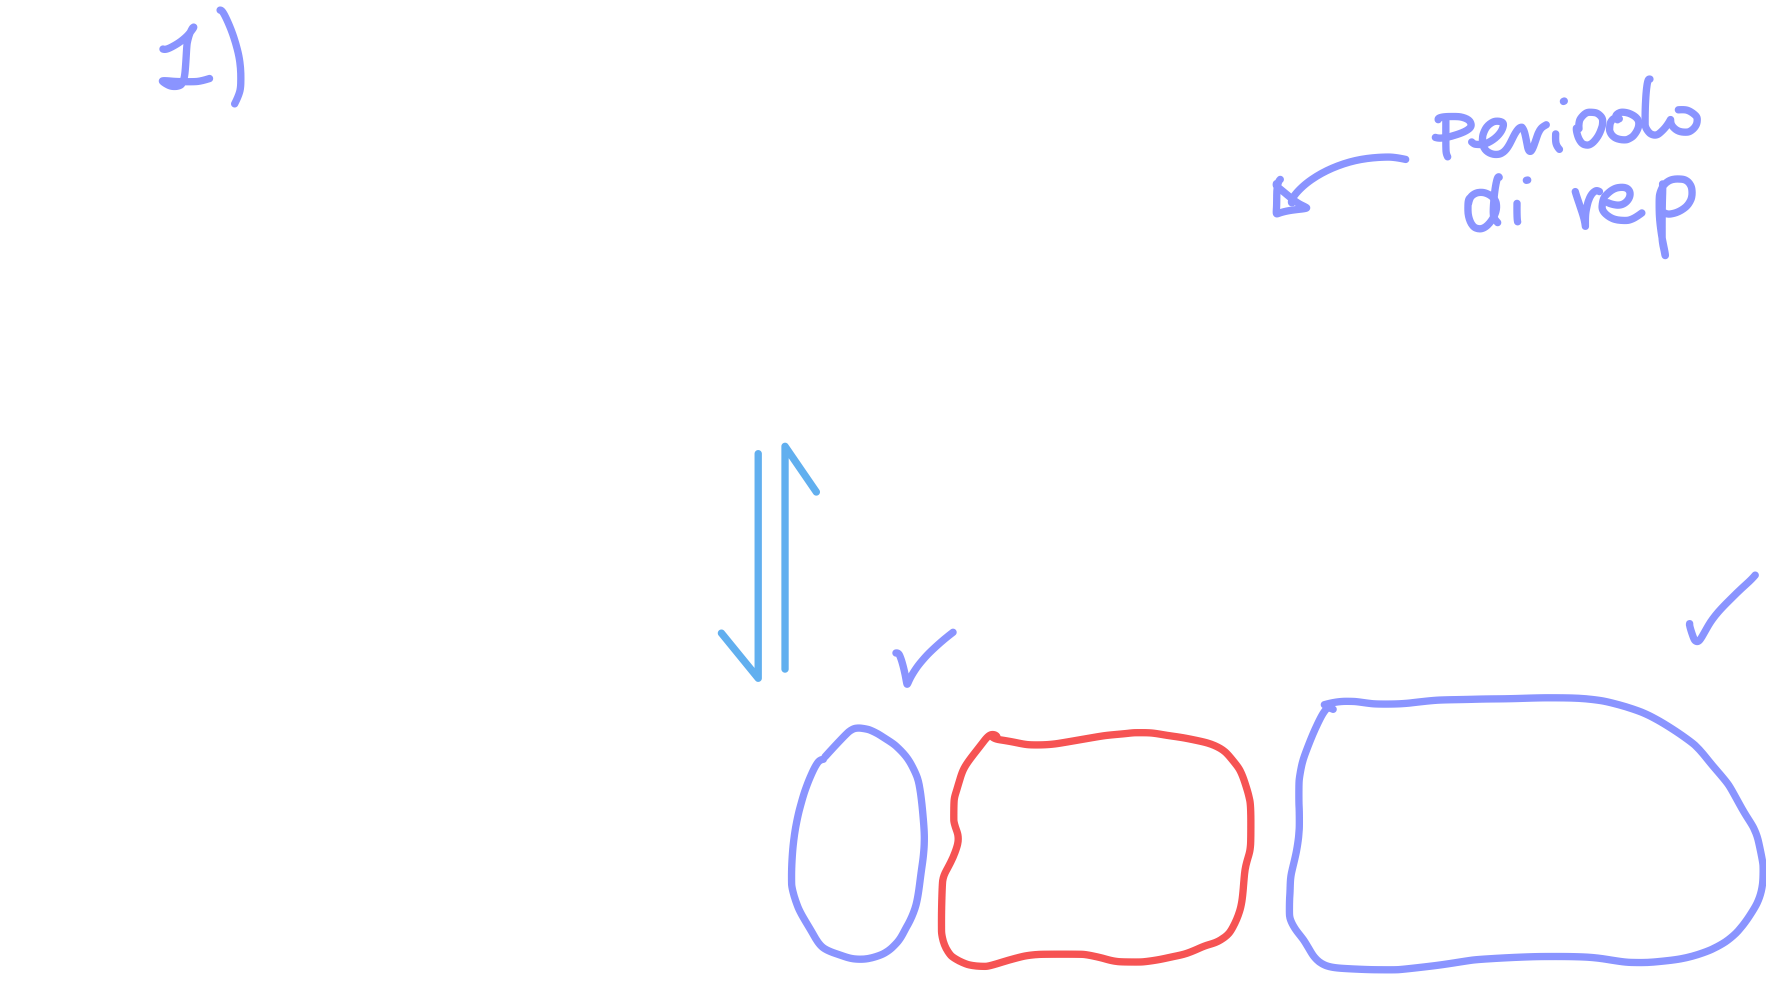 1)
periodo
di rep